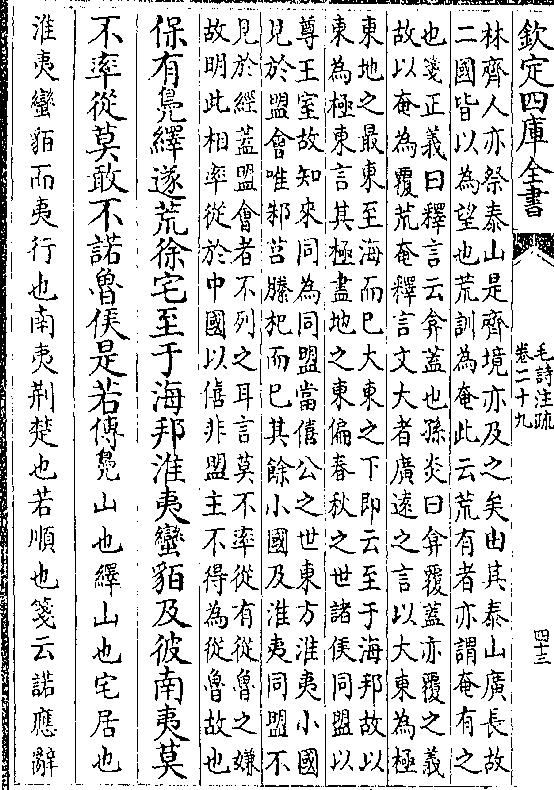 欽定四庫全書
毛詩注疏
卷二十九
四十三
林齊人亦祭泰山是齊境亦及之矣由其泰山廣長故
二國皆以為望也荒訓為奄此云荒有者亦謂奄有之
也箋正義曰釋言云弇蓋也孫炎曰弇覆蓋亦覆之義
故以奄為覆荒奄釋言文大者廣遠之言以大東為極
東地之最東至海而已大東之下即云至于海邦故以
東為極東言其極盡地之東偏春秋之世諸侯同盟以
尊王室故知來同為同盟當僖公之世東方淮夷小國
見於盟會唯邾莒滕杞而已其餘小國及淮夷同盟不
見於經蓋盟會者不列之耳言莫不率從有從魯之嫌
故明此相率從於中國以僖非盟主不得為從魯故也
保有鳧繹遂荒徐宅至于海邦淮夷蠻貊及彼南夷莫
不率從莫敢不諾魯侯是若傳鳧山也繹山也宅居也
淮夷蠻貊而夷行也南夷荆楚也若順也箋云諾應辭